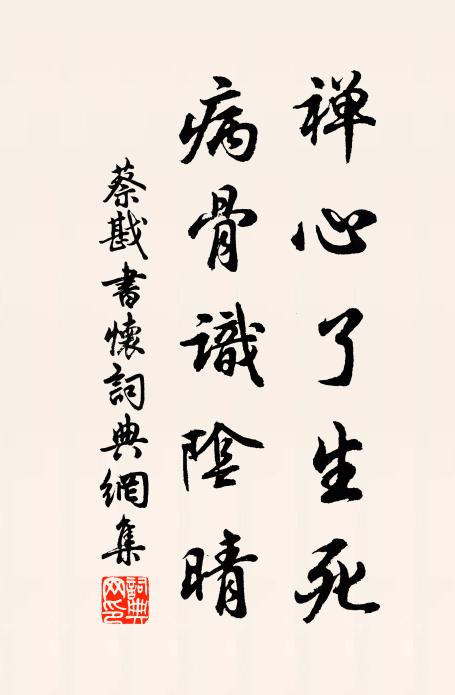 禅心了生死
病骨識陰晴
蔡戡書懷詞典網集
詞典
网印